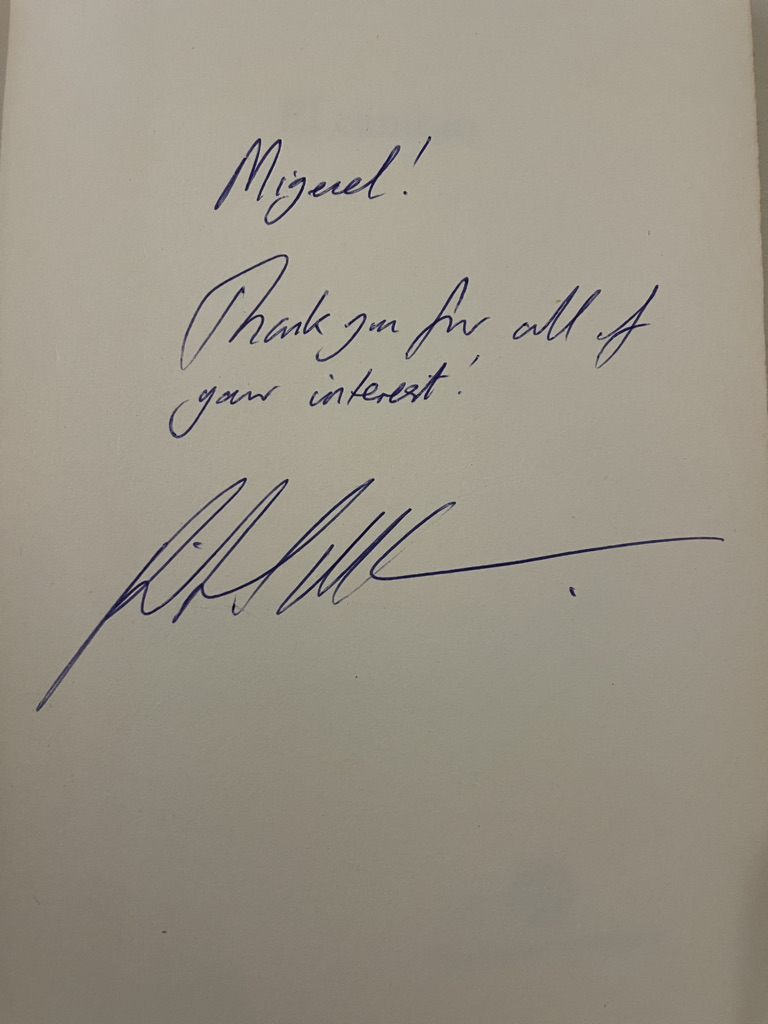 Miguel!
Thank you for all of
your interest!